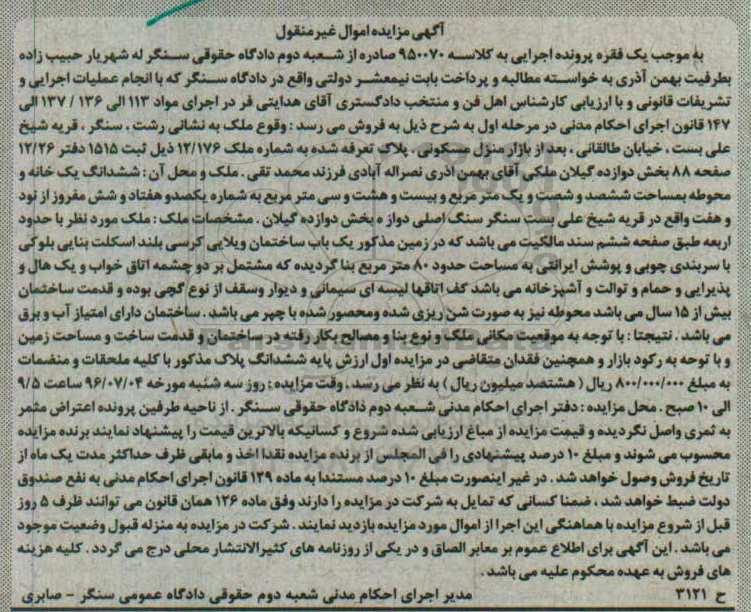 آگهی مزایده اموال غیرمنقول
به موجب یک فقره پرونده اجرایی به کلاسه ۹۵۰۰۷۰ صادره از شعبه دوم دادگاه حقوقی سنگر له شهریار حبیب زاده
بطرفیت بهمن آذری به خواسته مطالبه و پرداخت بابت نیمعشر دولتی واقع در دادگاه سنگر که با انجام عملیات اجرایی و
تشریفات قانونی و با ارزیابی کارشناس اهل فن و منتخب دادگستری آقای هدایتی فر در اجرای مواد ۱۱۳ الی ۱۳۶ / ۱۳۷ الی
۱۴۷ قانون اجرای احکام مدنی در مرحله اول به شرح ذیل به فروش می رسد : وقوع ملک به نشانی رشت ، سنگر ، قریه شیخ
علی بست ، خیابان طالقانی ، بعد از بازار منزل مسکونی . پلاک تعرفه شده به شماره ملک ۱۲/۱۷۶ ذیل ثبت ۱۵۱۵ دفتر ۱۲/۲۶
صفحه ۸۸ بخش دوازده گیلان ملکی آقای بهمن آذری نصراله آبادی فرزند محمد تقی . ملک و محل آن : ششدانگ یک خانه و
محوطه بمساحت ششصد و شصت و یک متر مربع و بیست و هشت و سی متر مربع به شماره یکصدو هفتاد و شش مفروز از نود
و هفت واقع در قریه شیخ علی بست سنگر سنگ اصلی دواز ه بخش دوازده گیلان . مشخصات ملک : ملک مورد نظر با حدود
اربعه طبق صفحه ششم سند مالکیت می باشد که در زمین مذکور یک باب ساختمان ویلایی کرسی بلند اسکلت بنایی بلوکی
با سربندی چوبی و پوشش ایرانتی به مساحت حدود ۸۰ متر مربع بنا گردیده که مشتمل بر دو چشمه اتاق خواب و یک هال و
پذیرایی و حمام و توالت و آشپزخانه می باشد کف اتاقها لیسه ای سیمانی و دیوار وسقف از نوع گچی بوده و قدمت ساختمان
بیش از ۱۵ سال می باشد محوطه نیز به صورت شن ریزی شده ومحصور شده با چپر می باشد . ساختمان دارای امتیاز آب و برق
می باشد . نتیجتا : با توجه به موقعیت مکانی ملک و نوع بنا و مصالح بکار رفته در ساختمان و قدمت ساخت و مساحت زمین
و با توجه به رکود بازار و همچنین فقدان متقاضی در مزایده اول ارزش پایه ششدانگ پلاک مذکور با کلیه ملحقات و منضمات
به مبلغ ۸۰۰/۰۰۰/۰۰۰ ریال ( هشتصد میلیون ریال ) به نظر می رسد . وقت مزایده : روز سه شنبه مورخه ۹۶/۰۷/۰۴ ساعت ۹/۵
الی ۱۰ صبح . محل مزایده : دفتر اجرای احکام مدنی شعبه دوم دادگاه حقوقی سنگر . از ناحیه طرفین پرونده اعتراض مثمر
به ثمری واصل نگردیده و قیمت مزایده از مبلغ ارزیابی شده شروع و کسانیکه بالاترین قیمت را پیشنهاد نمایند برنده مزایده
محسوب می شوند و مبلغ ۱۰ درصد پیشنهادی را فی المجلس از برنده مزایده نقدا اخذ و مابقی ظرف حداکثر مدت یک ماه از
تاریخ فروش وصول خواهد شد . در غیر اینصورت مبلغ ۱۰ درصد مستندا به ماده ۱۲۹ قانون اجرای احکام مدنی به نفع صندوق
دولت ضبط خواهد شد ، ضمنا کسانی که تمایل به شرکت در مزایده را دارند وفق ماده ۱۲۶ همان قانون می توانند ظرف ۵ روز
قبل از شروع مزایده با هماهنگی این اجرا از اموال مورد مزایده بازدید نمایند . شرکت در مزایده به منزله قبول وضعیت موجود
می باشد . این آگهی برای اطلاع عموم بر معابر الصاق و در یکی از روزنامه های کثیرالانتشار محلی درج می گردد . کلیه هزینه
های فروش به عهده محکوم علیه می باشد .
ح ۳۱۲۱ مدیر اجرای احکام مدنی شعبه دوم حقوقی دادگاه عمومی سنگر - صابری